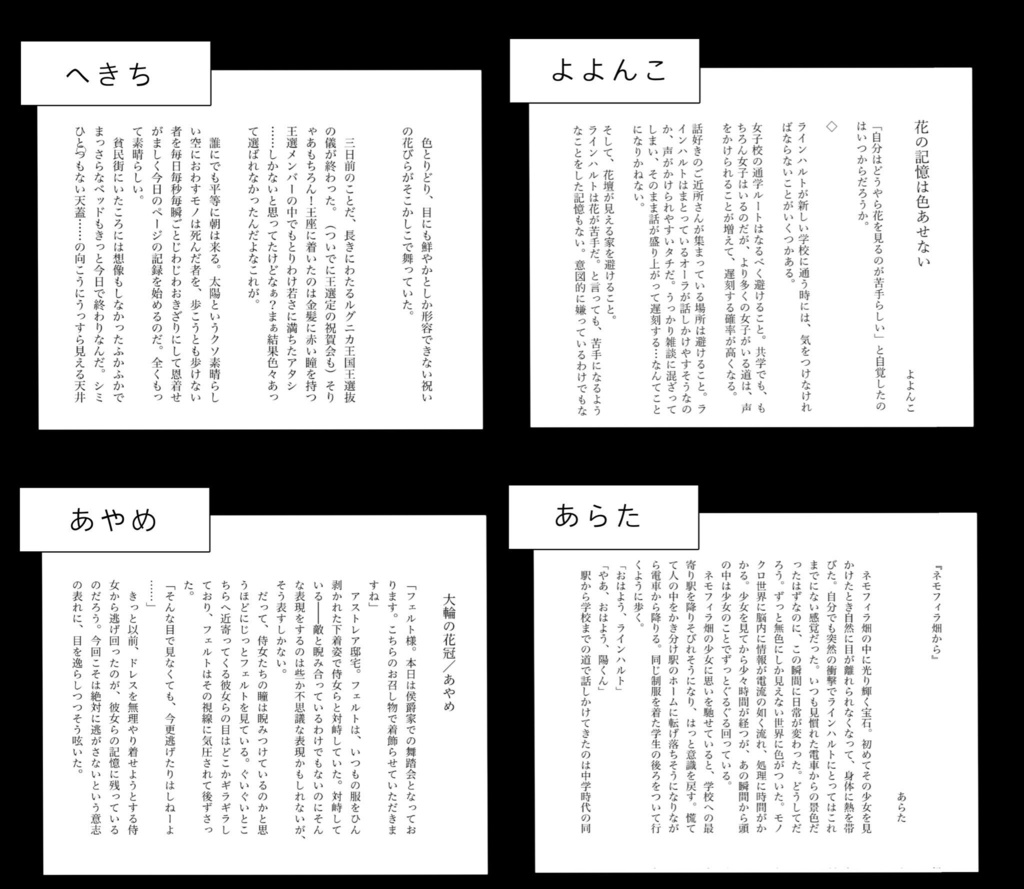 へきち
色とりどり、目にも鮮やかとしか形容できない祝い
の花びらがそこかしこで舞っていた。
三日前のことだ、長きにわたるルグニカ王国王選抜
の儀が終わった。（ついでに王選定の祝賀会も）そり
ゃあもちろん！王座に着いたのは金髪に赤い瞳を持つ
王選メンバーの中でもとりわけ若さに満ちたアタシ
……しかないと思ってたけどなぁ？まぁ結果色々あっ
て選ばれなかったんだよなこれが。
誰にでも平等に朝は来る。太陽というクソ素晴らし
い空におわすモノは死んだ者を、歩こうとも歩けない
者を毎日毎秒毎瞬ごとじわじわおきざりにして恩着せ
がましく今日のページの記録を始めるのだ。全くもっ
て素晴らしい。
貧民街にいたころには想像もしなかったふかふかで
まっさらなベッドもきっと今日で終わりなんだ。シミ
ひとつもない天蓋……の向こうにうっすら見える天井
よよんこ
花の記憶は色あせない
よよんこ
「自分はどうやら花を見るのが苦手らしい」と自覚したの
はいつからだろうか。
◇
ラインハルトが新しい学校に通う時には、気をつけなけれ
ばならないことがいくつかある。
女子校の通学ルートはなるべく避けること。共学でも、も
ちろん女子はいるのだが、より多くの女子がいる道は、声
をかけられることが増えて、遅刻する確率が高くなる。
話好きのご近所さんが集まっている場所は避けること。ラ
インハルトはまとっているオーラが話しかけやすそうなの
か、声がかけられやすいタチだ。うっかり雑談に混ざって
しまい、そのまま話が盛り上がって遅刻する…なんてこと
になりかねない。
そして、花壇が見える家を避けること。
ラインハルトは花が苦手だ。と言っても、苦手になるよう
なことをした記憶もない。意図的に嫌っているわけでもな
あやめ
大輪の花冠／あやめ
「フェルト様。本日は侯爵家での舞踏会となってお
ります。こちらのお召し物で着飾らせていただきま
すね」
アストレア邸宅。フェルトは、いつもの服をひん
剥かれた下着姿で侍女らと対峙していた。対峙して
いる――敵と睨み合っているわけでもないのにそん
な表現をするのは些か不思議な表現かもしれないが、
そう表すしかない。
だって、侍女たちの瞳は睨みつけているのかと思
うほどにじっとフェルトを見ている。ぐいぐいとこ
ちらへ近寄ってくる彼女らの目はどこかギラギラし
ており、フェルトはその視線に気圧されて後ずさっ
た。
「そんな目で見なくても、今更逃げたりはしねーよ
……」
きっと以前、ドレスを無理やり着せようとする侍
女から逃げ回ったのが、彼女らの記憶に残っている
のだろう。今回こそは絶対に逃がさないという意志
の表れに、目を逸らしつつそう呟いた。
あらた
『ネモフィラ畑から』
あらた
ネモフィラ畑の中に光り輝く宝石。初めてその少女を見
かけたとき自然に目が離れられなくなって、身体に熱を帯
びた。自分でも突然の衝撃でラインハルトにとってはこれ
までにない感覚だった。いつも見慣れた電車からの景色だ
ったはずなのに、この瞬間に日常が変わった。どうしてだ
ろう。ずっと無色にしか見えない世界に色がついた。モノ
クロ世界に脳内に情報が電流の如く流れ、処理に時間がか
かる。少女を見てから少々時間が経つが、あの瞬間から頭
の中は少女のことでずっとぐるぐる回っている。
ネモフィラ畑の少女に思いを馳せていると、学校への最
寄り駅を降りそびれそうになり、はっと意識を戻す。慌て
て人の中をかき分け駅のホームに転げ落ちそうになりなが
ら電車から降りる。同じ制服を着た学生の後ろをついて行
くように歩く。
「おはよう、ラインハルト」
「やあ、おはよう、陽くん」
駅から学校までの道で話しかけてきたのは中学時代の同